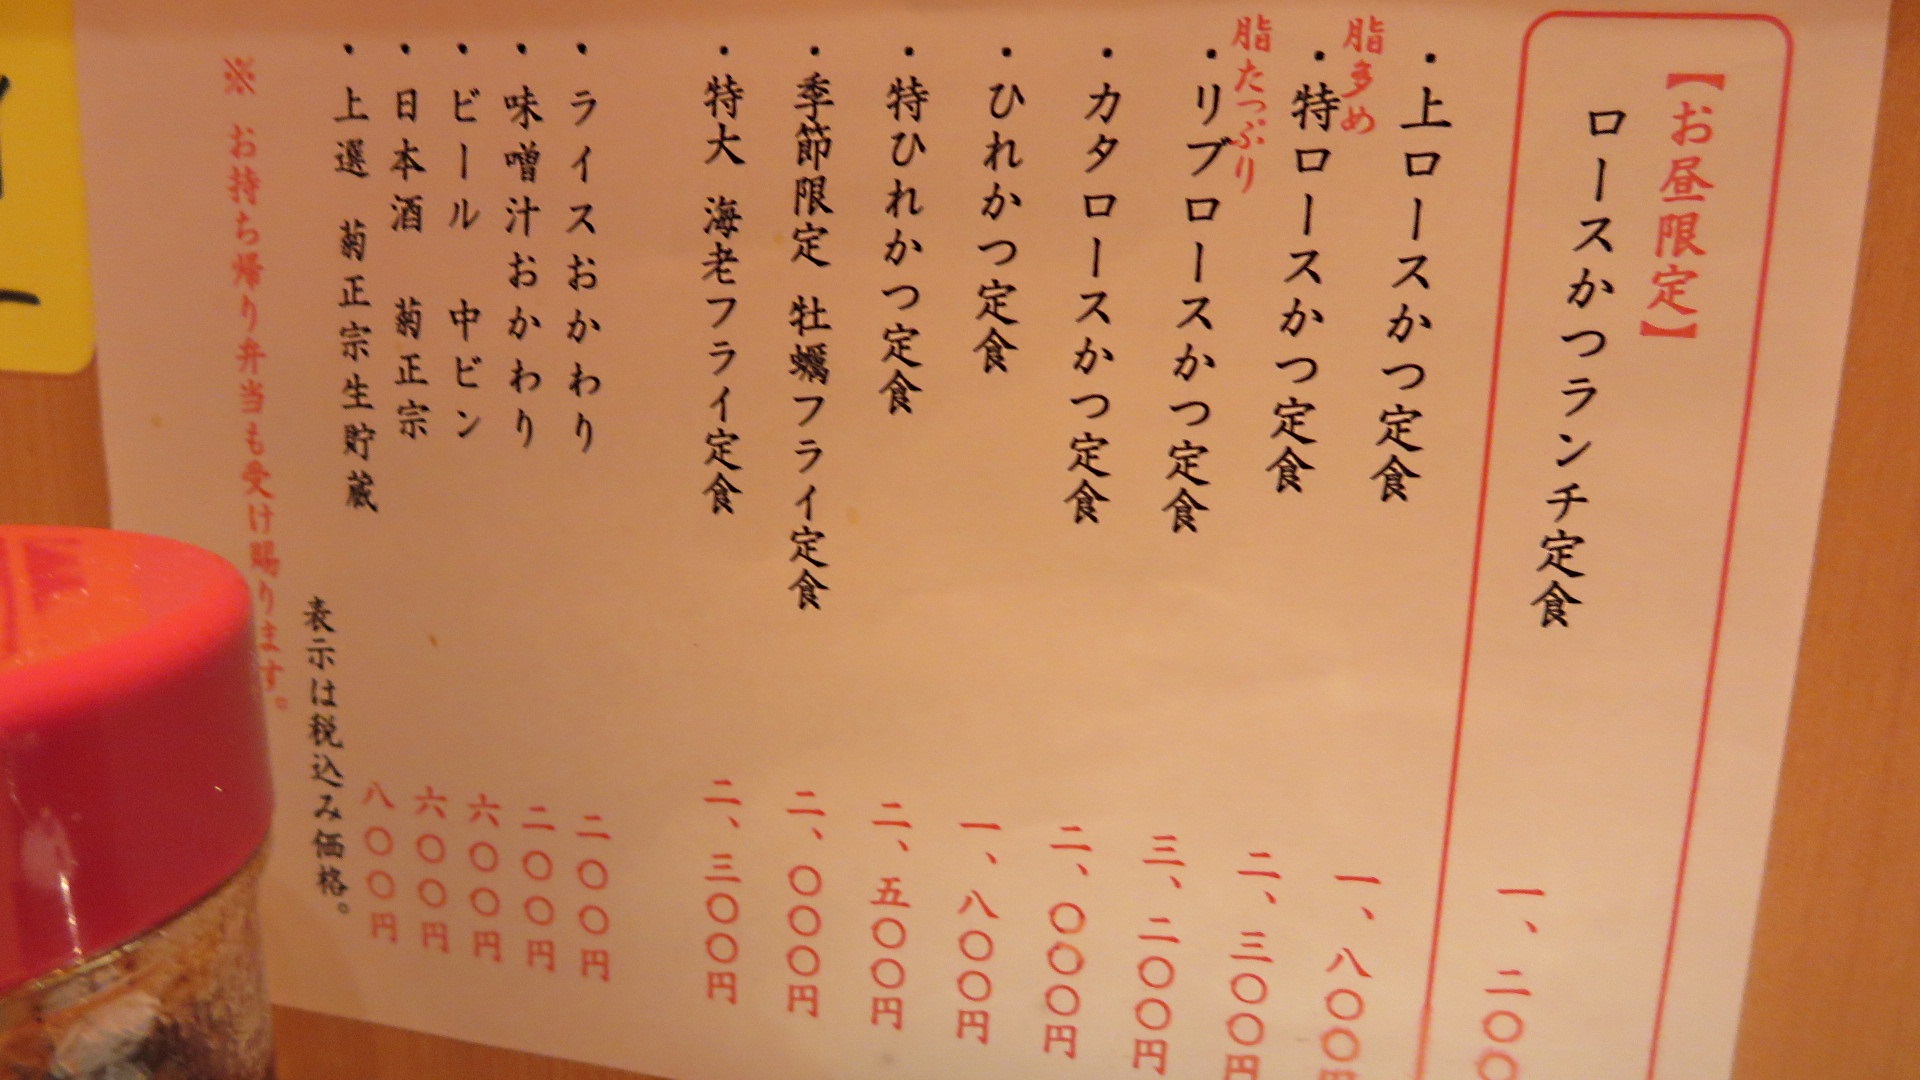 【お昼限定】
ロースかつランチ定食 一、二〇〇
・上ロースかつ定食 一、八〇〇円
脂多め
・特ロースかつ定食 二、三〇〇円
脂たっぷり
・リブロースかつ定食 三、二〇〇円
・カタロースかつ定食 二、〇〇〇円
・ひれかつ定食 一、八〇〇円
・特ひれかつ定食 二、五〇〇円
・季節限定 牡蠣フライ定食 二、〇〇〇円
・特大 海老フライ定食 二、三〇〇円
・ライスおかわり 二〇〇円
・味噌汁おかわり 二〇〇円
・ビール 中ビン 六〇〇円
・日本酒 菊正宗 六〇〇円
・上選 菊正宗生貯蔵 八〇〇円
表示は税込み価格。
※ お持ち帰り弁当も受け賜ります。